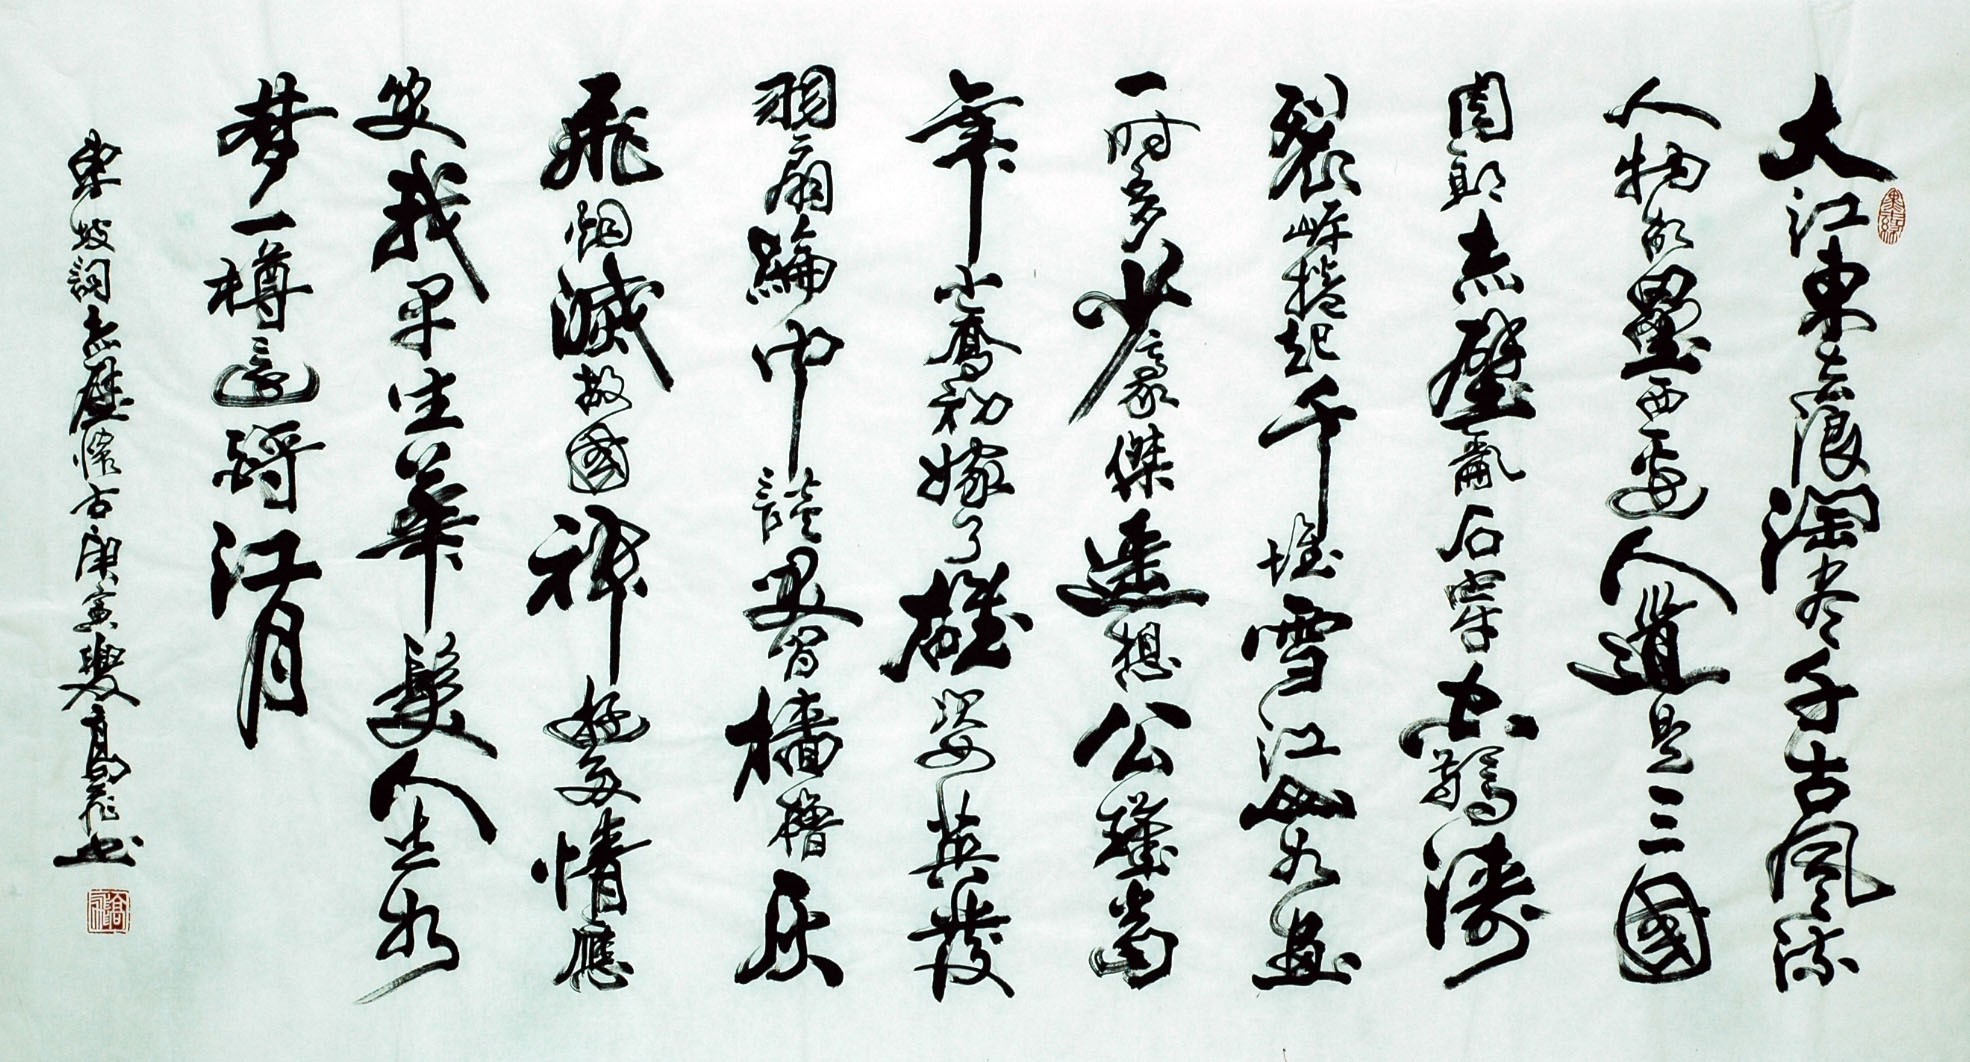 大江東去浪淘尽千古風流
人物故壘西邊人道是三國
周郎赤壁亂石穿空驚濤
裂岸捲起千堆雪江山如畫
一時多少豪傑遙想公瑾當
年小喬初嫁了雄姿英發
羽扇綸巾談笑間檣櫓灰
飛烟滅故國神遊多情應
笑我早生華髮人生如
梦一樽還酹江月
東坡詞赤壁懷古庚寅書